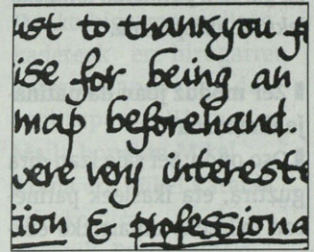 ust to thank you
ise for being an
map beforehand.
were very intereste
ion & professiona